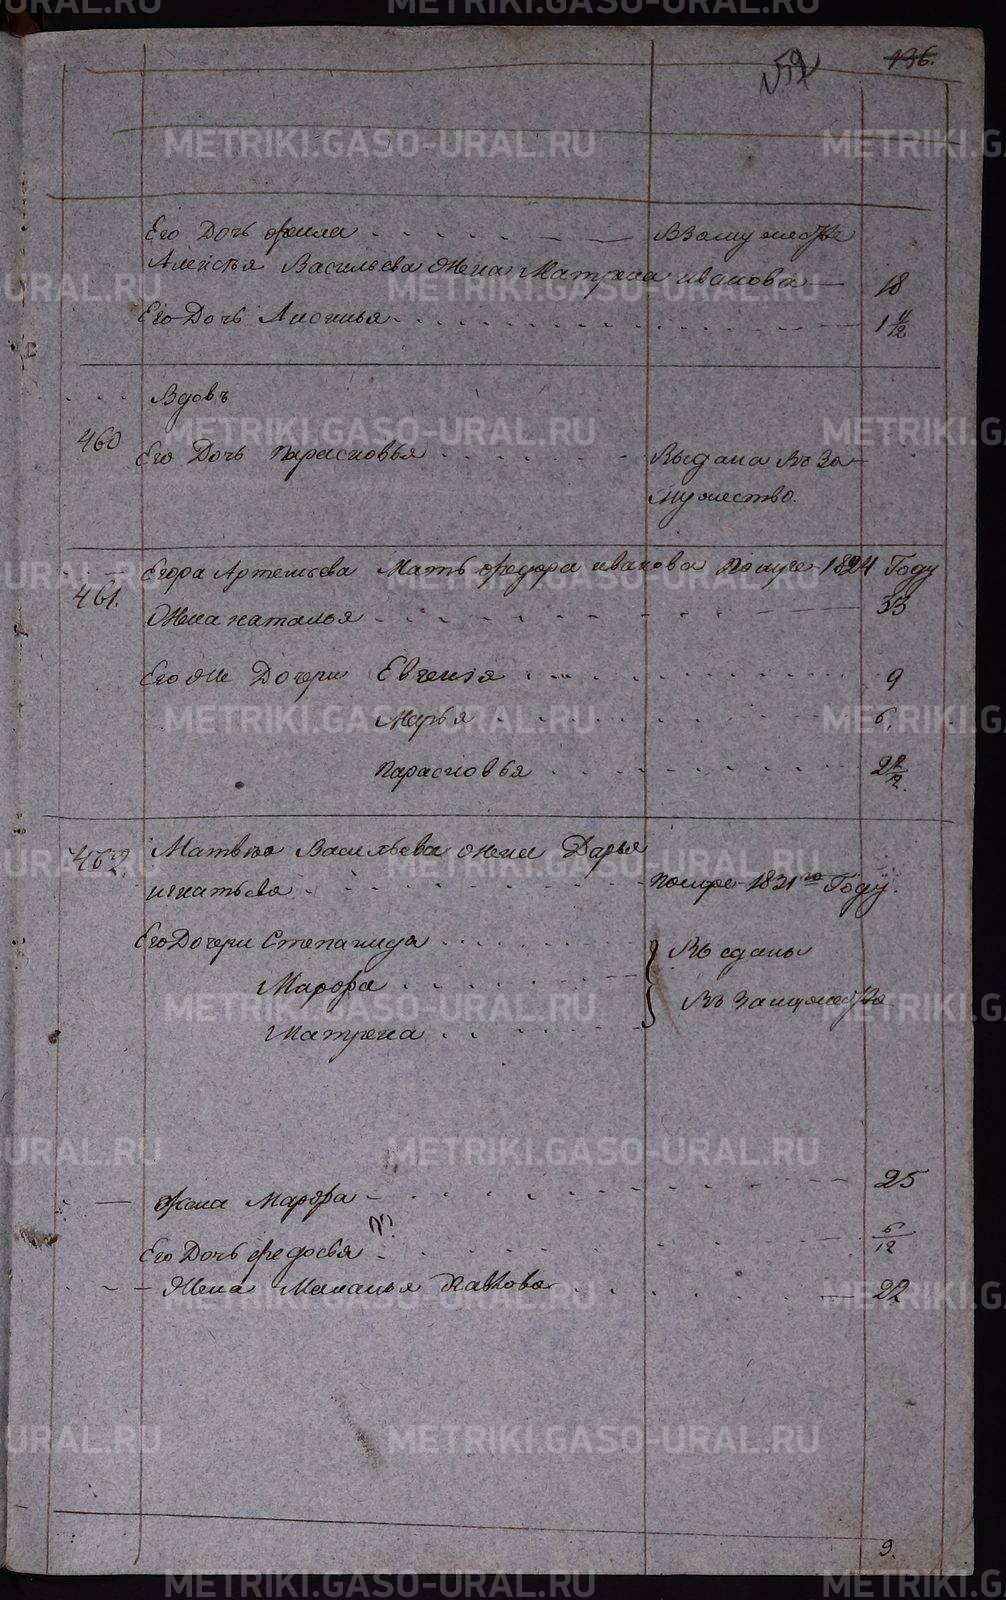 136.
Его Дочь
Взамужестве
Алексѣя Васильева Жена Матрена иванова 18
Его Дочь 1 11/12
Вдовъ
460
Его Дочь Парасковья Выдана Въ За-
мужество.
Егора Артемьева Мать Федора иванова 1824 Году
461.
Жена наталья 33
Его же Дочери Евгенія 9
Марья 6.
Парасковья 2 2/12.
462. Матвѣя Васильева жена Дарья
игнатьева Помре 1831го Году.
Его Дочери Степанида Выданы
Марфа Въ Замужество
Матрена
Жена Марфа 25
Его Дочь Федосья 6/12
Жена Маланья Павлова 22
9.
METRIKI.GASO-URAL.RU